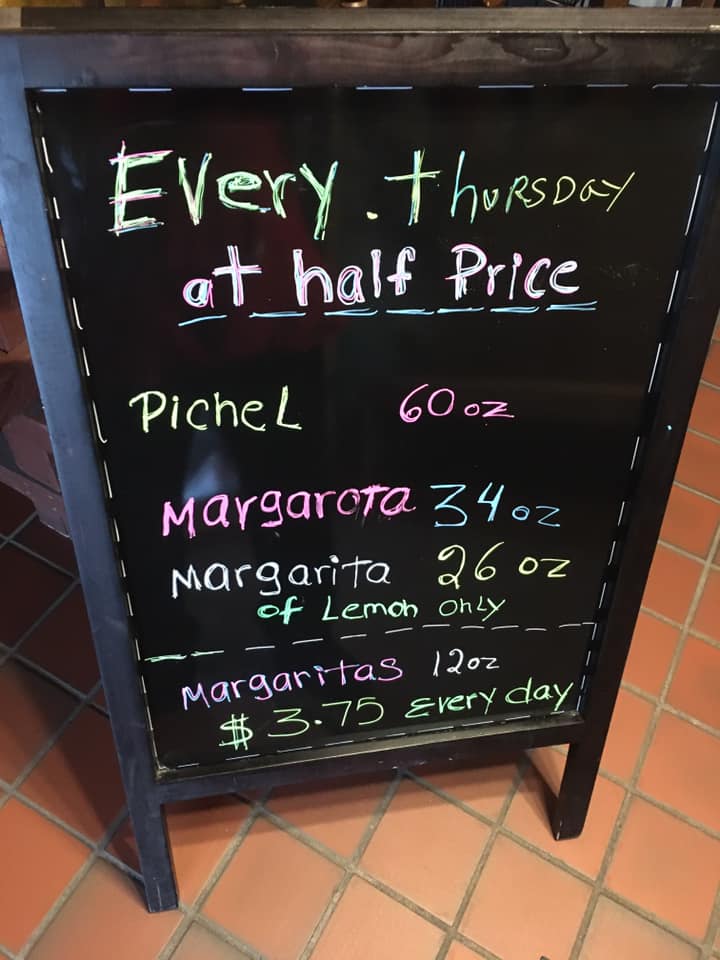 Every. thuRSDay
at half Price
PicheL 60 oz
Margarota 34 oz
Margarita 26 oz
of Lemon OnLy
Margaritas 12oz
$3.75 Every day